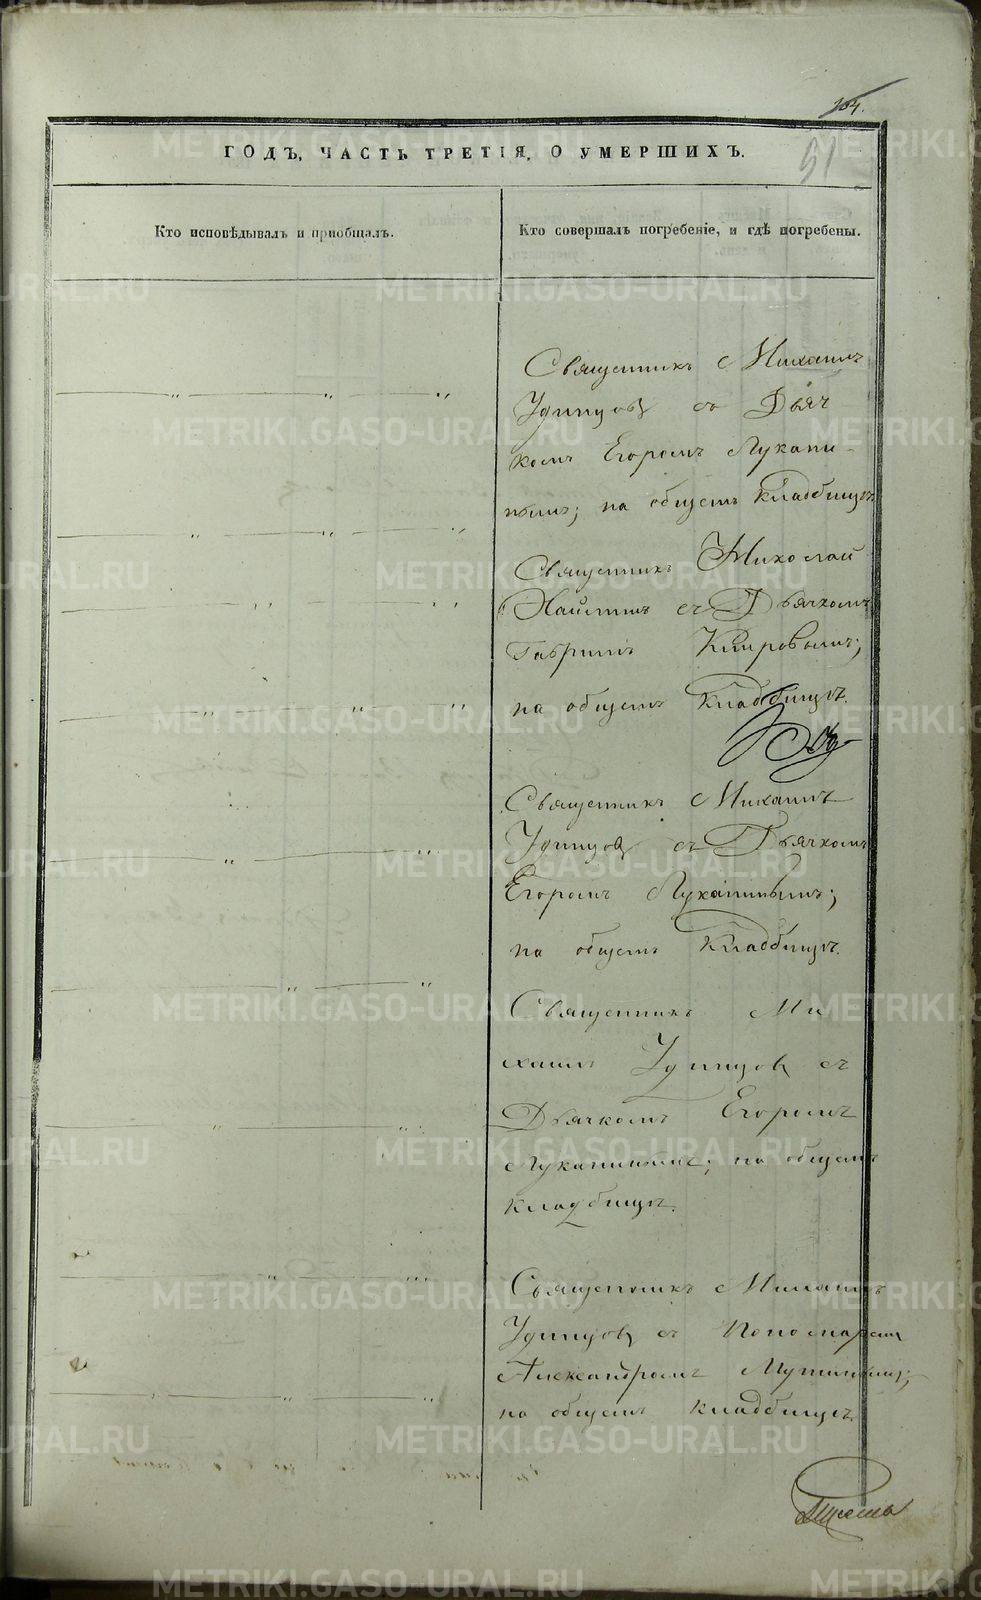 104.
91
ГОДЪ, ЧАСТЬ ТРЕТІЯ, О УМЕРШИХЪ.
Кто исповѣдывалъ и пріобщалъ.
Кто совершалъ погребеніе, и гдѣ погребены.
Священникъ Михаилъ
Удинцовъ съ Дьяч
комъ Егоромъ Лукани-
нымъ; на общемъ кладбищѣ
Священникъ Николай
съ Дьячкомъ
Гавриилъ Кировымъ;
на общемъ кладбищѣ.
Священникъ Михаилъ
Удинцовъ съ Дьячкомъ
Егоромъ Луканинымъ;
на общемъ кладбищѣ.
Священникъ Ми
хаилъ Удинцовъ съ
Дьячкомъ Егоромъ
Луканинымъ; на общемъ
кладбищѣ.
Священникъ Михаилъ
Удинцовъ съ Пономаремъ
Александромъ
на общемъ кладбищѣ
METRIKI.GASO-URAL.RU